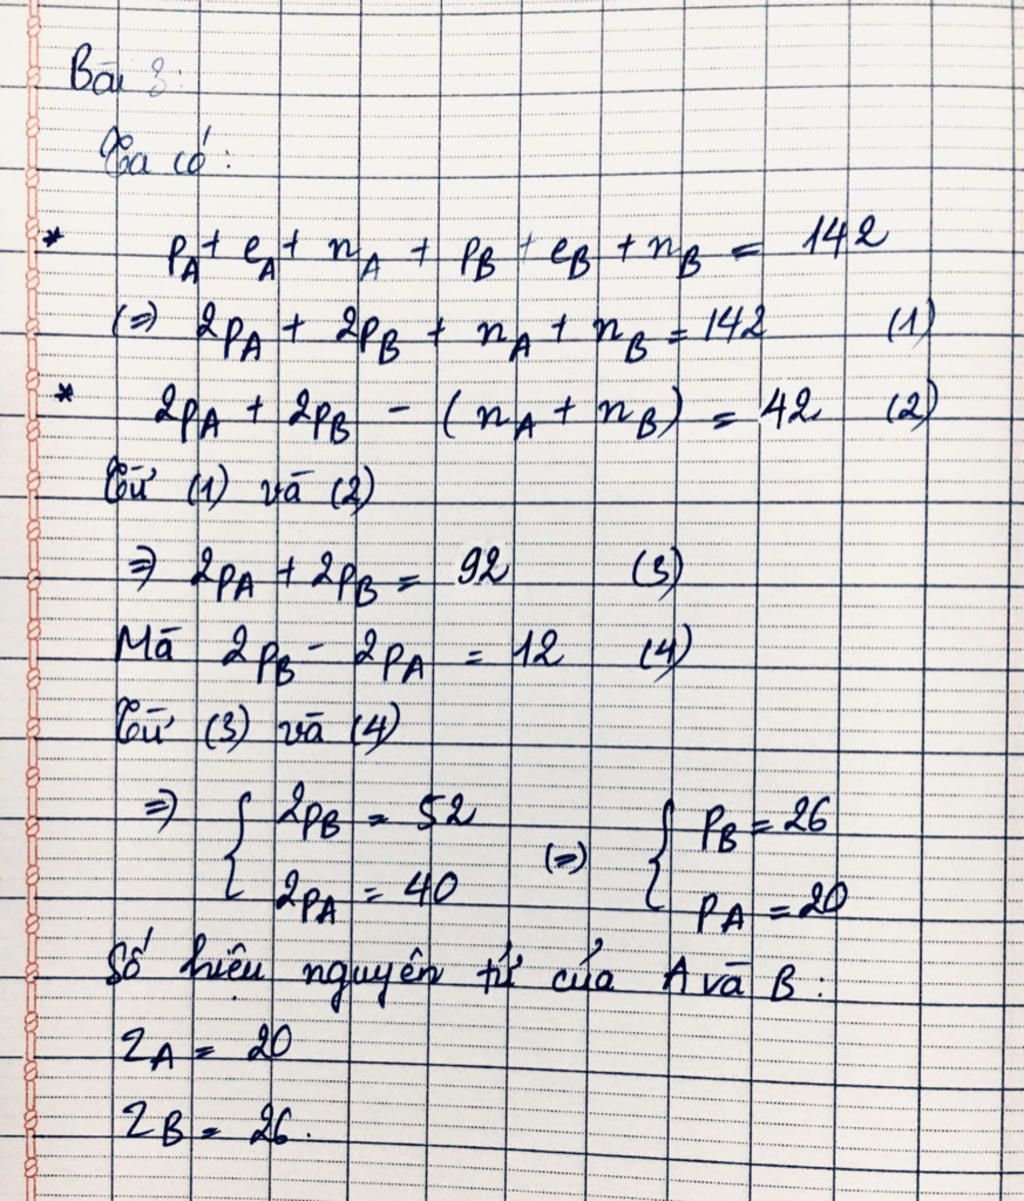 Bài 3:
Ta có:
* pA + eA + nA + pB + eB + nB = 142
(=) 2pA + 2pB + nA + nB = 142 (1)
* 2pA + 2pB - (nA + nB) = 42 (2)
Từ (1) và (2)
=) 2pA + 2pB = 92 (3)
Mà 2pB - 2pA = 12 (4)
Từ (3) và (4)
=) { 2pB = 52 (=) { pB = 26
2pA = 40 pA = 20
Số hiệu nguyên tử của A và B:
ZA = 20
ZB = 26.